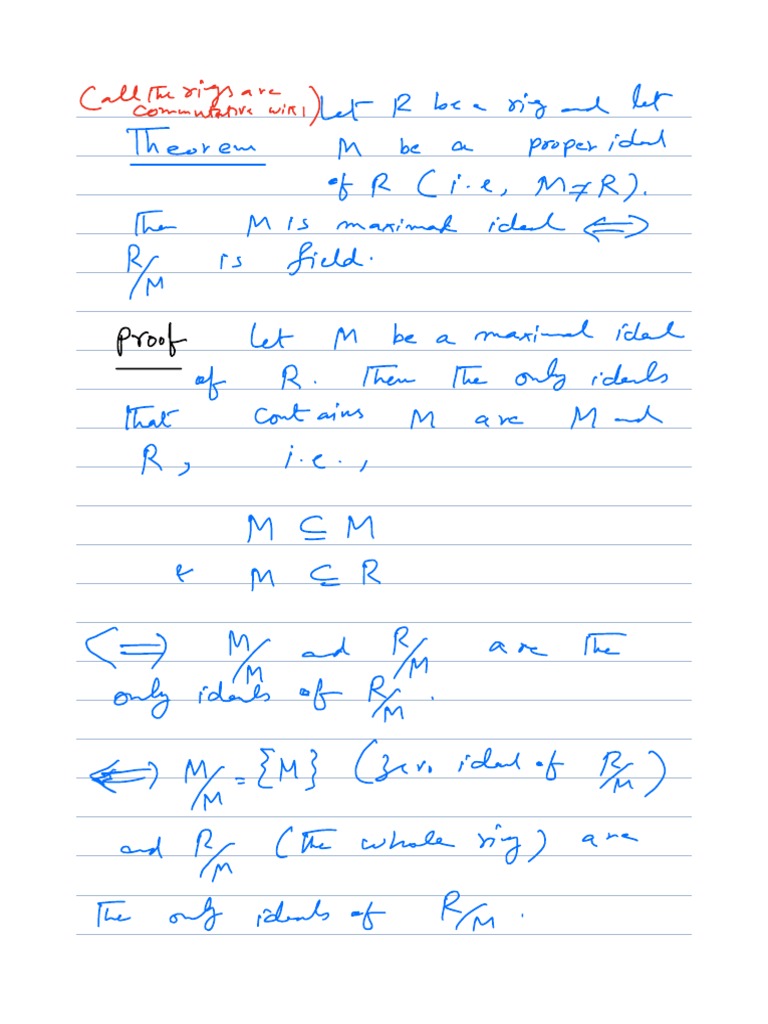 (all the rings are
commutative with 1) Let R be a ring and let
Theorem M be a proper ideal
of R (i.e, M ≠ R).
Then M is maximal ideal ⟺
R/M is field.
Proof Let M be a maximal ideal
of R. Then the only ideals
that contains M are M and
R, i.e.,
M ⊆ M
& M ⊆ R
⟺ M/M and R/M are the
only ideals of R/M.
⟺ M/M = {M} (zero ideal of R/M)
and R/M (the whole ring) are
the only ideals of R/M.